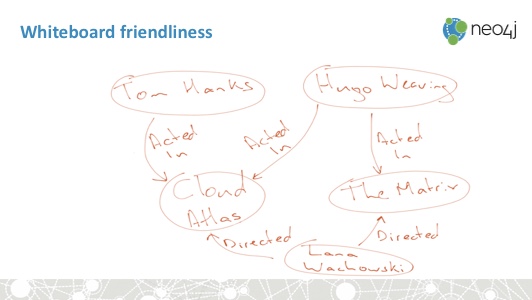 Whiteboard friendliness
neo4j
Tom Hanks
Hugo Weaving
Acted
In
Acted
In
Acted
In
Cloud
Atlas
The Matrix
Directed
Directed
Lana
Wachowski